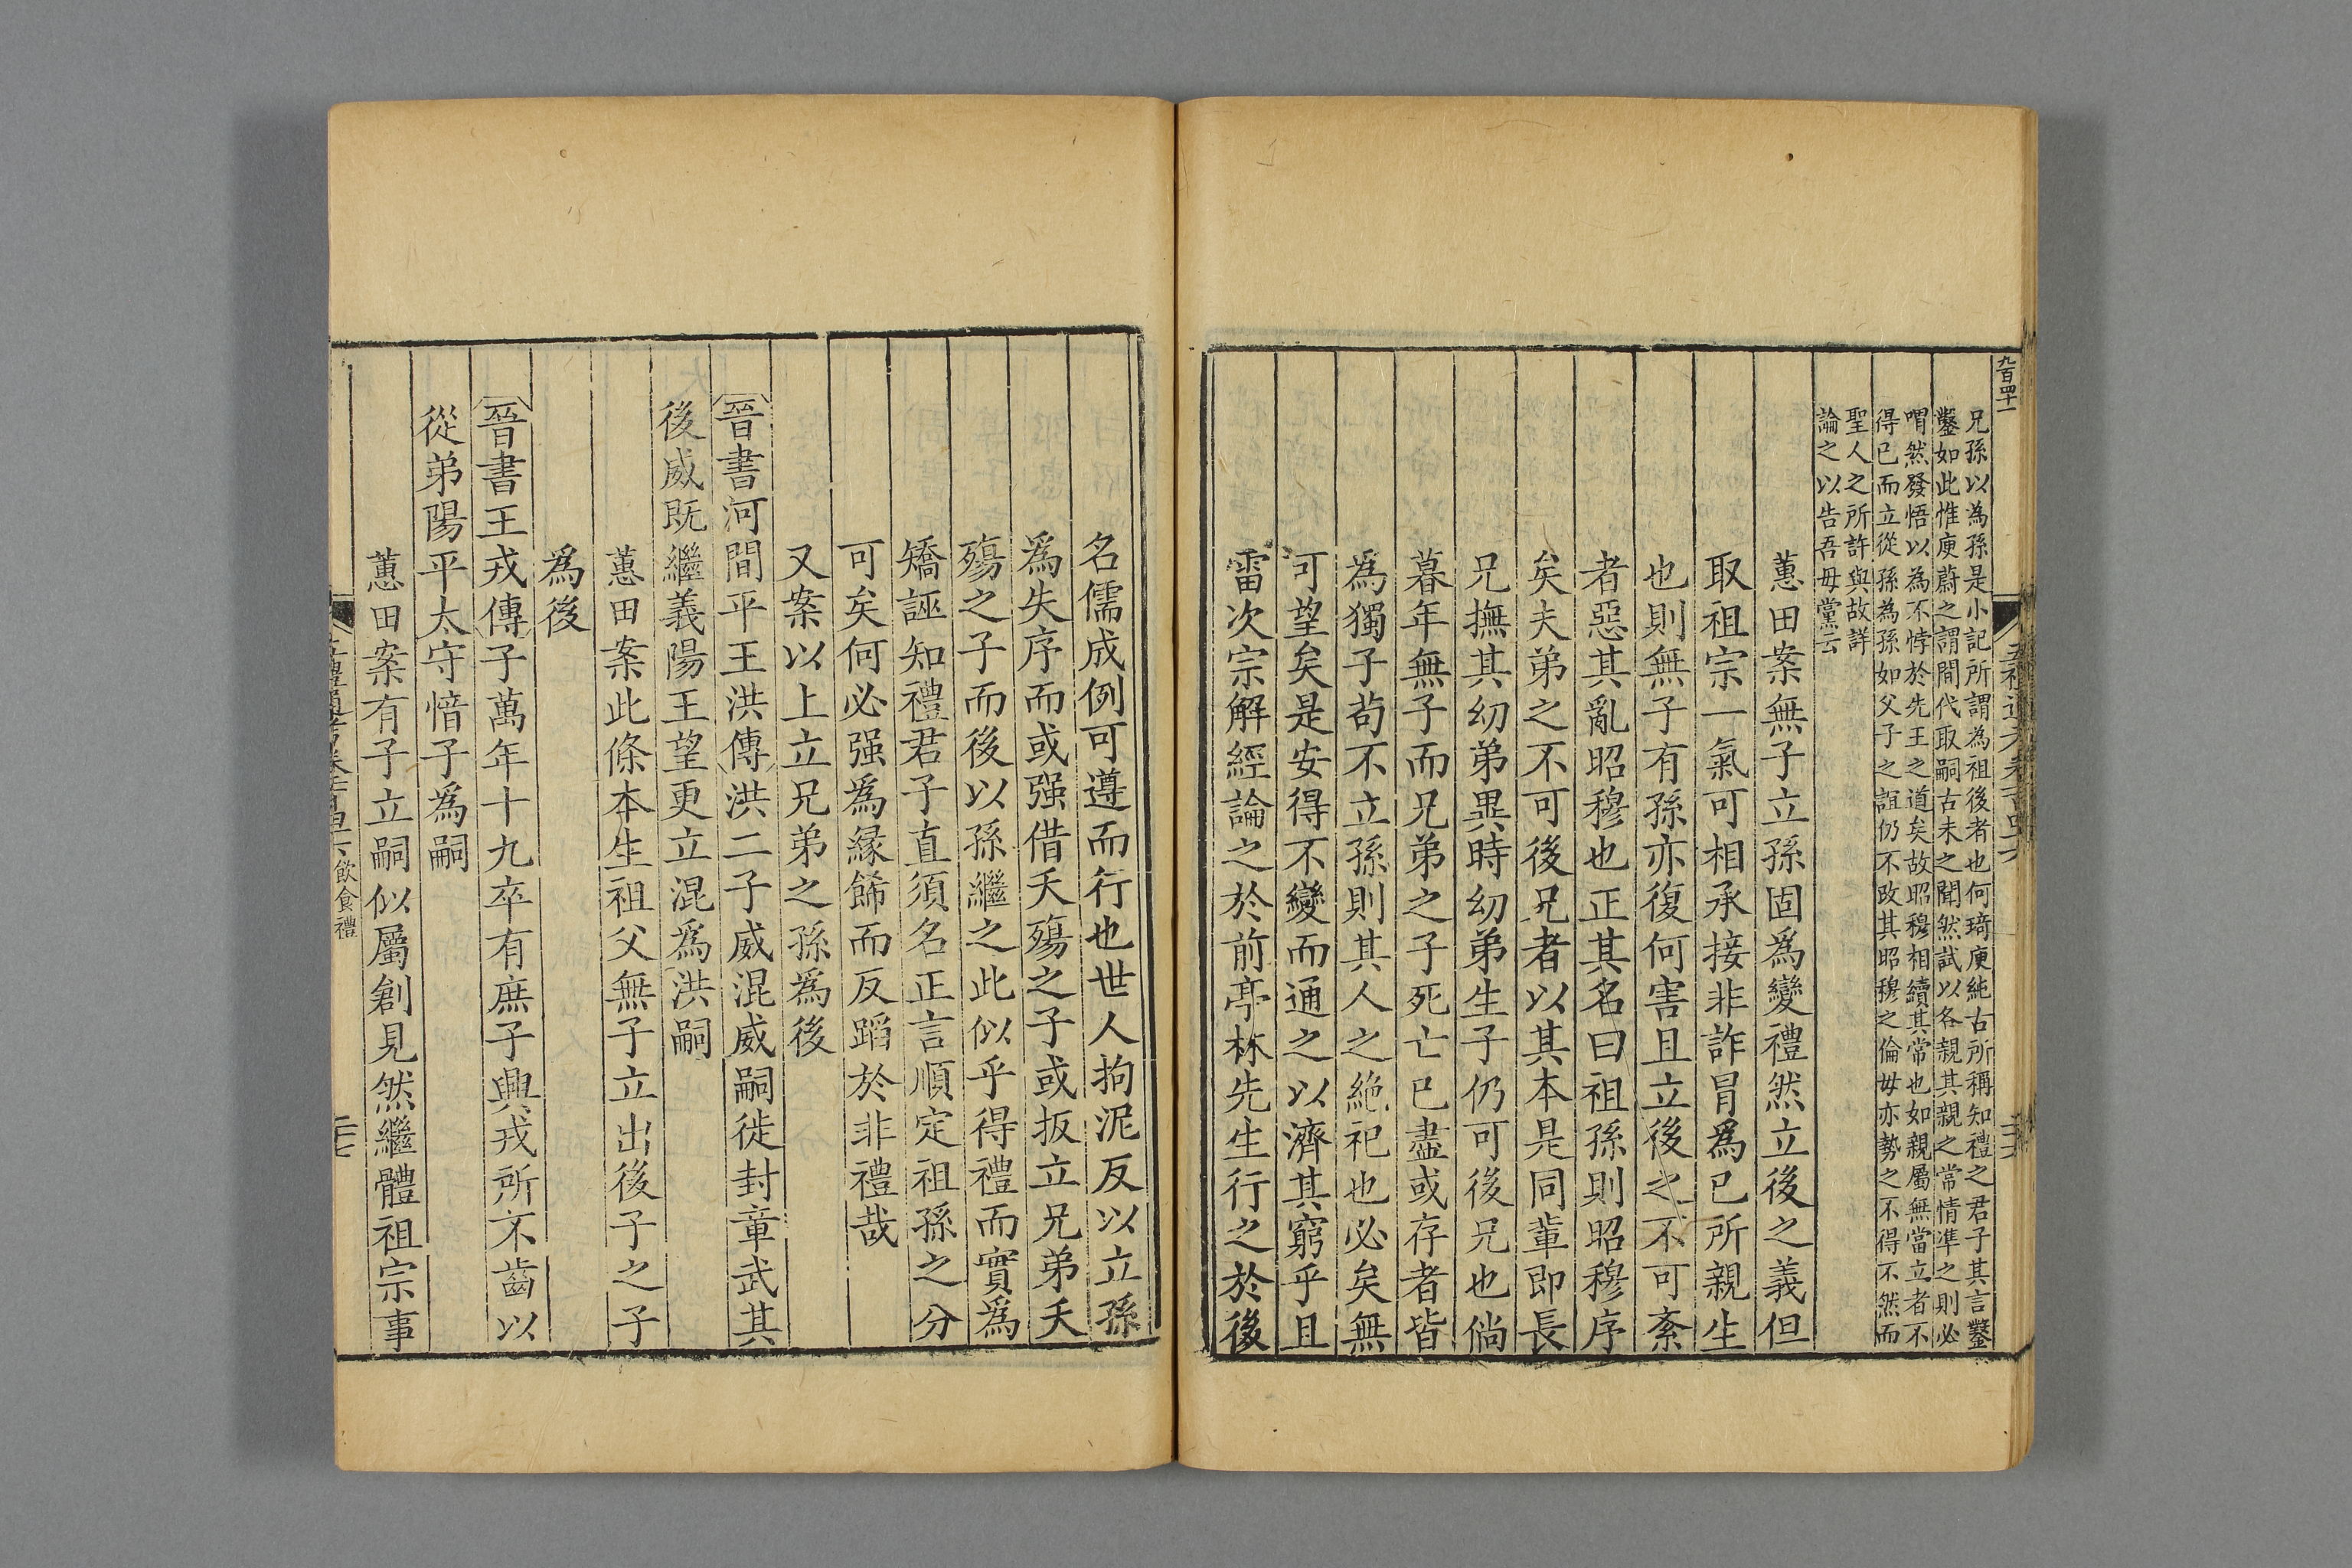 九百四十一
兄孫以為孫是小記所謂為祖後者也何琦庾純古所稱知禮之君子其言鑿
鑿如此惟庾蔚之謂間代取嗣古未之聞然試以各親其親之常情準之則必
喟然發悟以為不悖於先王之道矣故昭穆相續其常也如親屬無當立者不
得已而立從孫為孫如父子之誼仍不改其昭穆之倫毋亦勢之不得不然而
聖人之所許與故詳
論之以告吾毋黨云
蕙田案無子立孫固爲變禮然立後之義但
取祖宗一氣可相承接非詐冒爲已所親生
也則無子有孫亦復何害且立後之不可紊
者惡其亂昭穆也正其名曰祖孫則昭穆序
矣夫弟之不可後兄者以其本是同輩即長
兄撫其幼弟異時幼弟生子仍可後兄也倘
暮年無子而兄弟之子死亡已盡或存者皆
為獨子苟不立孫則其人之絶祀也必矣無
可望矣是安得不變而通之以濟其窮乎且
雷次宗解經論之於前亭林先生行之於後
名儒成例可遵而行也世人拘泥反以立孫
爲失序而或强借夭殤之子或扳立兄弟夭
殤之子而後以孫繼之此似乎得禮而實爲
矯誣知禮君子直須名正言順定祖孫之分
可矣何必强爲緣餙而反蹈於非禮哉
又案以上立兄弟之孫爲後
晉書河間平王洪傳洪二子威混威嗣徙封章武其
後威既繼義陽王望更立混爲洪嗣
蕙田案此條本生祖父無子立出後子之子
爲後
晉書王戎傳子萬年十九卒有庶子興戎所不齒以
從弟陽平太守愔子爲嗣
蕙田案有子立嗣似屬創見然繼體祖宗事
飲食禮